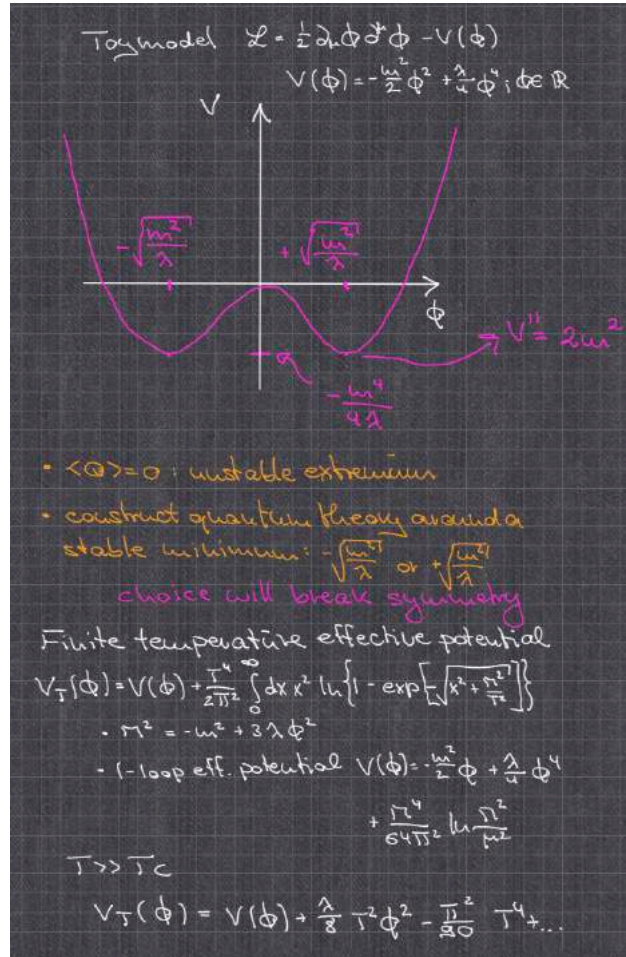 Toymodel ℒ = ½ ∂μϕ ∂^μϕ − V(ϕ)
V(ϕ) = −m²/2 ϕ² + λ/4 ϕ⁴ ; ϕ∈ℝ
V
−√(m²/λ) +√(m²/λ)
ϕ
→ V'' = 2m²
−m⁴/4λ
• <Φ>=0 : unstable extremum
• construct quantum theory around a
stable minimum: −√(m²/λ) or +√(m²/λ)
choice will break symmetry
Finite temperature effective potential
V_T(ϕ) = V(ϕ) + T⁴/2π² ∫₀^∞ dx x² ln{1 − exp[−√(x² + M²/T²)]}
• M² = −m² + 3λϕ²
• 1-loop eff. potential V(ϕ) = −m²/2 ϕ + λ/4 ϕ⁴
+ M⁴/64π² ln M²/μ²
T >> Tc
V_T(ϕ) = V(ϕ) + λ/8 T²ϕ² − π²/90 T⁴ + ...